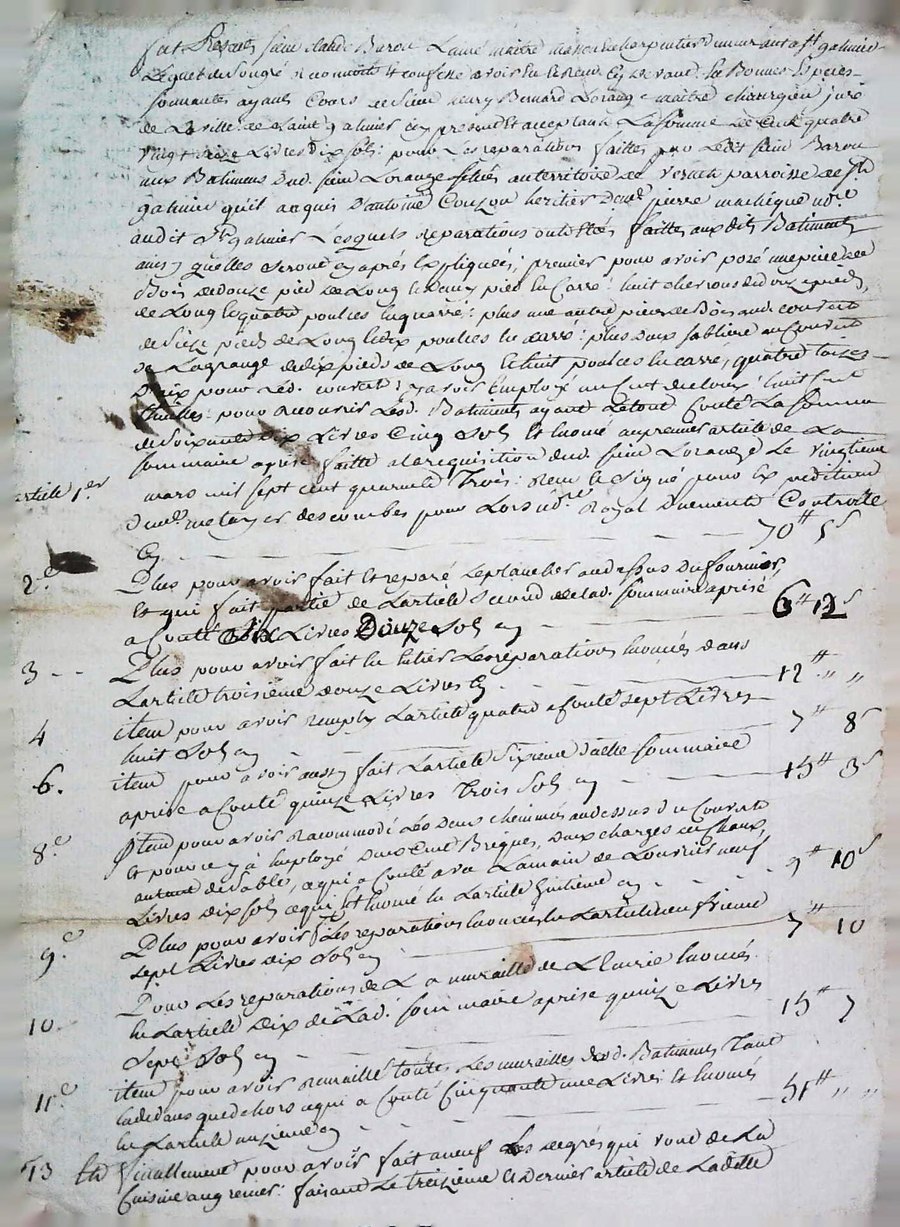 fut Presens sieur claude Barou Laisné maitre masson charpentier demeurant a st galmier
Lequel de son gré reconnoit & confesse avoir eu & receu en de vant en Bonnes Especes
sonnantes ayant Cours de sieur henry Bernard Lorange maitre chirurgien juré
de La ville de saint galmier icy present et acceptant La somme de Cent quatre
vingt Livres dix sols: pour Les reparations faittes par Le dit sieur Barou
aux Batimens Dud. sieur Lorange scitués au territoire de parroisse de st
galmier qu'il a aquis d'antoine Couzon heritier de me. pierre machéque nore
audit st. galmier Lesquels reparations ont Estés faittes aux dits Batiments
ainsy quelles seront cy après Expliquées: premier pour avoir pozé une pièce de
Bois de douze pied de Long & demy pied en Carré: huit chevrons de pieds
de Long & quatre poulces en quarré: plus une autre pièce de Bois au couvert
de seize pieds de Long & dix poulces en carré: plus deux sablière au Couvert
de La grange de dix pieds de Long & huit poulces en carré, quatre toizes
Daix pour Led. couvert: y avoir Employé un Cent de cloux: huit cent
thuilles: pour recouvrir Lesd. Batiments ayant Le tout Couté La somme
de soixante dix Livres Cinq sols Et enoncé au premier article de La
article 1er sommaire aprise faitte a la requisition dud. sieur Lorange Le vingtieme
mars mil sept cent quarante Trois: receu & signé pour Expedition
de me. metayer descombes pour Lors nore. Royal Duement Controlle
cy 70# 5s
2e Plus pour avoir fait & reparé Le plancher au dessus du fournier,
Et qui fait partie de Larticle second de lad. sommaire aprise
a Couté six Livres Douze sols cy 6# 12s
3 Plus pour avoir fait en entier Les reparations enoncés dans
Larticle troisième douze Livres cy 12# " "
4 item pour avoir remply Larticle quatre a couté sept Livres
huit sols cy 7# 8s
6. item pour avoir aussy fait Larticle sixieme d'icelle sommaire
aprise a Couté quinze Livres Trois sols cy 15# 3s
8e Item pour avoir racommodé Les deux cheminées au dessus du Couvert
Et pour ce y a Employé deux Cent Briques, deux charges de chaux,
autant de sable, a qui a Couté avec Lamain de Louvrier neuf
Livres dix sols ce qui est enoncé en Larticle huitieme cy 9# 10s
9e Plus pour avoir fait Les reparations enoncées en Larticle neufvieme
sept Livres dix sols cy 7# 10
10. Pour Les reparations de La muraille de L'Ecurie enoncés
en Larticle Dix de Lad. sommaire aprise quinze Livres
sept sols cy 15# 7
11e item pour avoir remuraillé toutes Les murailles desd. Batiments Tant
en dedans quedehors a qui a Couté Cinquante une Livres Et enoncés
en Larticle onzieme cy 51# " "
13 Et finallement pour avoir fait a neuf Les degrés qui vont de La
Cuisine au grenier: faisant Le treizieme & Dernier article de Ladette